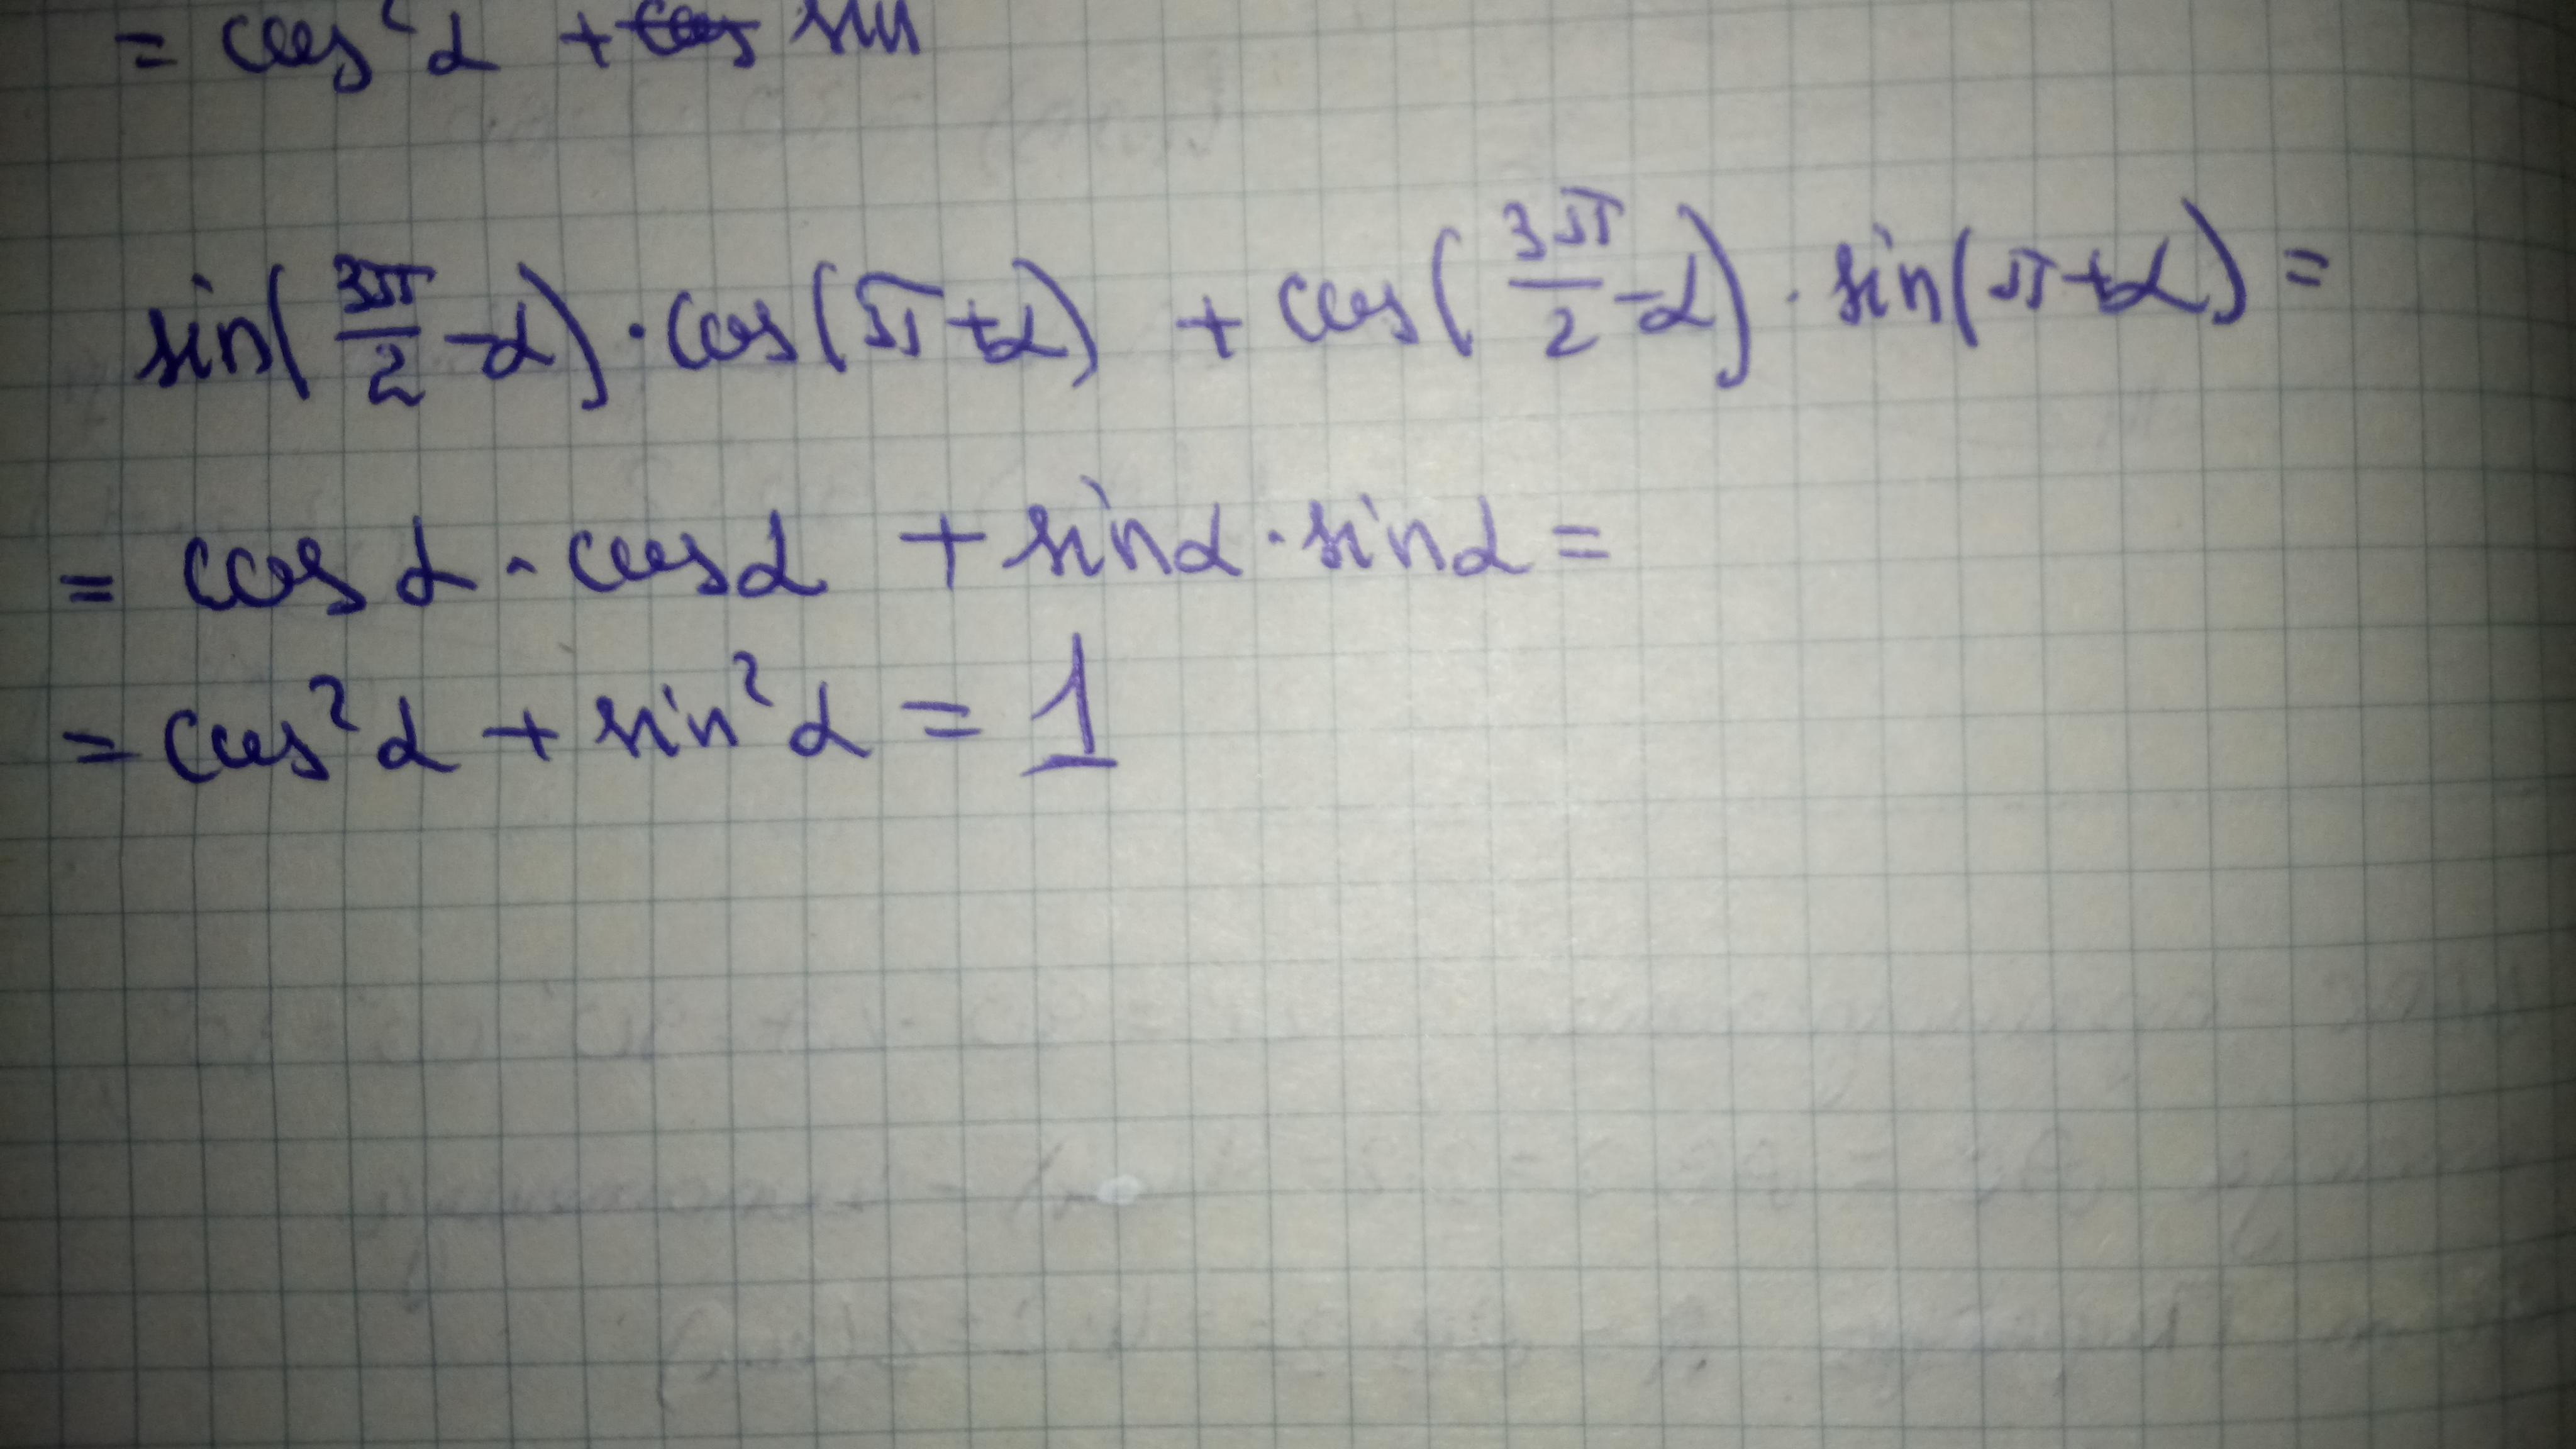 = cos²α + cos sin
sin(3π/2 - α) · cos(π + α) + cos(3π/2 - α) · sin(π + α) =
= cos α · cos α + sin α · sin α =
= cos² α + sin² α = 1